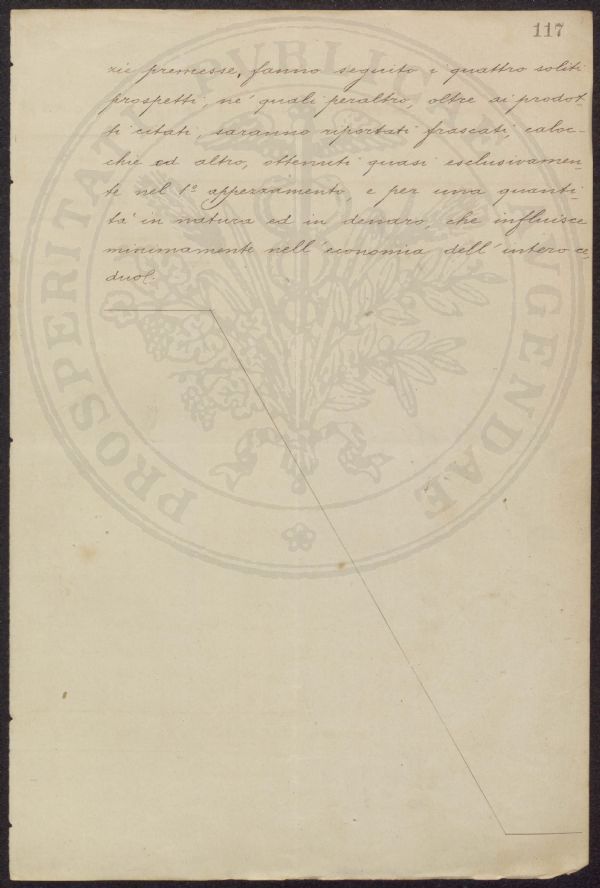 117
zie premesse, fanno seguito i quattro soliti
prospetti, ne' quali peraltro, oltre ai prodot-
ti citati, saranno riportati frascati, caloc-
chie ed altro, ottenuti quasi esclusivamen-
te nel 1º appezzamento e per una quanti-
tà in natura ed in denaro, che influisce
minimamente nell'economia dell'intero ce-
duo.
PROSPERITATI PVBLICAE AVGENDAE